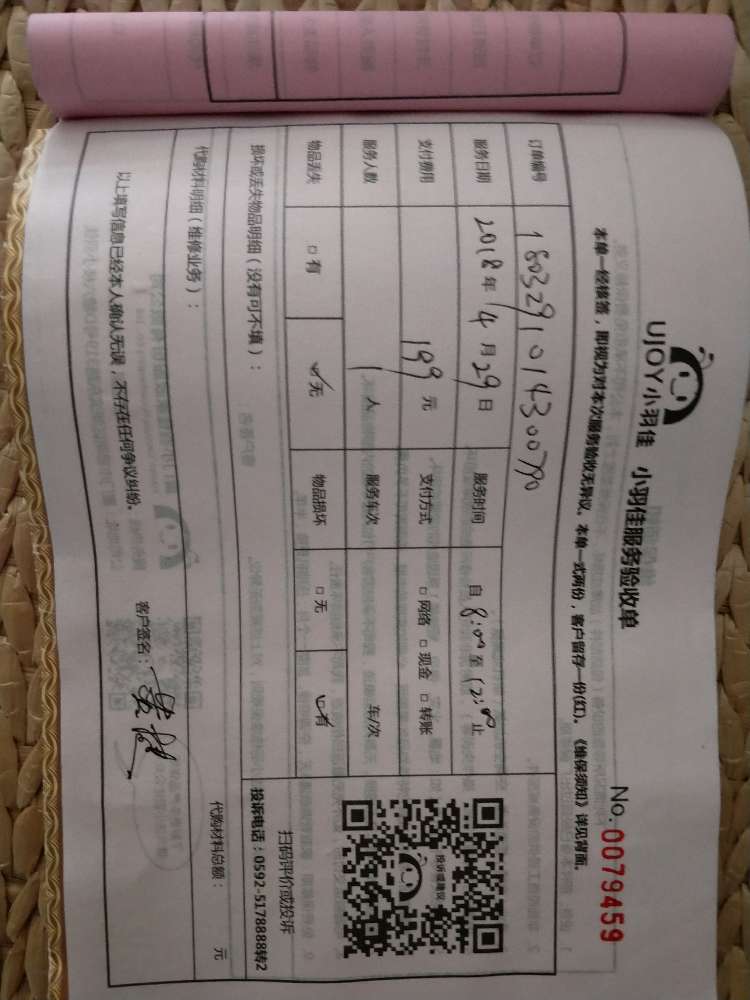 UJOY小羽佳 小羽佳服务验收单 No. 0079459
本单一经核签，即视为对本次服务验收无异议。本单一式两份，客户留存一份(红)。《维保须知》详见背面。
订单编号 1803291014300790
服务日期 2018年 4月29日 服务时间 自 8:00 至 12:00 止
支付费用 199 元 支付方式 □网络 □现金 □转账
服务人数 1人 服务车次 车/次
物品丢失 □有 ☑无 物品损坏 □无 ☑有
投诉或建议
扫码评价或投诉
损坏或丢失物品明细（没有可不填）：
投诉电话：0592-5178888转2
代购材料明细（维修业务）： 代购材料总额： 元
以上填写信息已经本人确认无误，不存在任何争议纠纷。 客户签名：